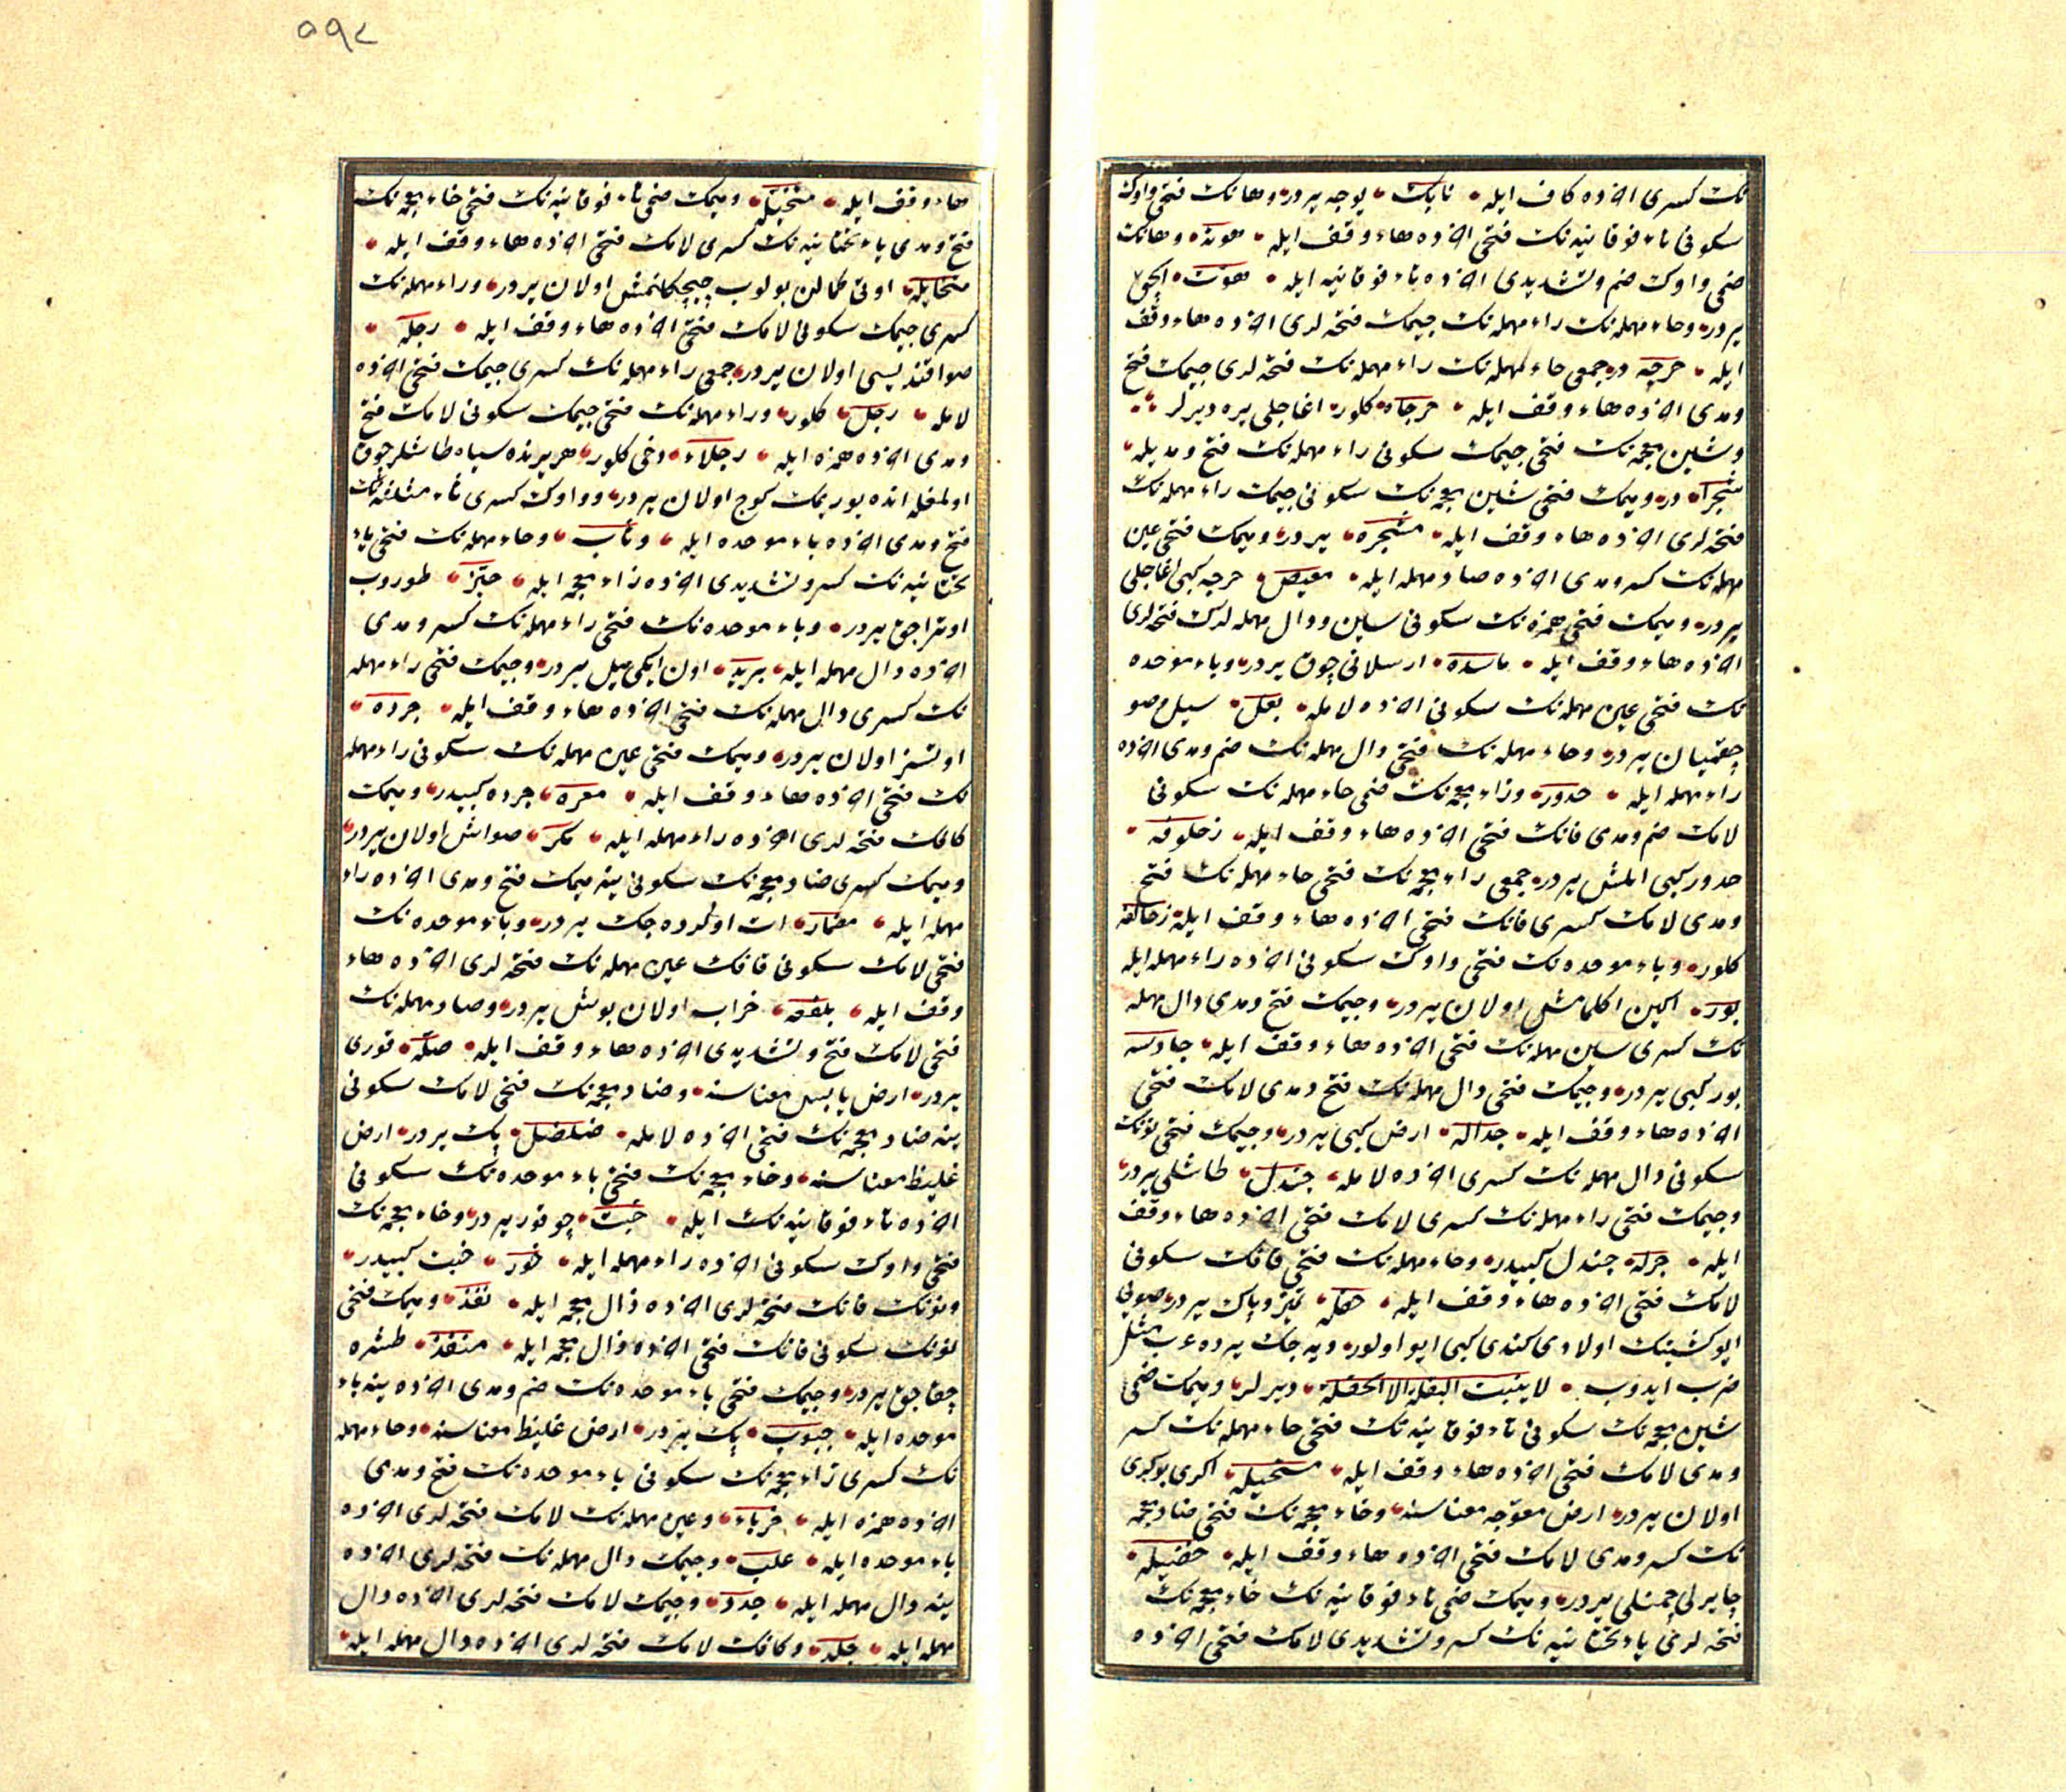 نك كسرى اخرنده كاف ايله نابك يوجه يردر وهانك فتحى واوك
سكونى تاء فوقانيه نك فتحى اخرنده هاء وقف ايله هوته وهانك
ضمى واوك ضم وتشديدى اخرنده تاء فوقانيه ايله هوت
يردر وحاء مهمله نك راء مهمله نك جيمك فتحه لرى اخرنده هاء وقف
ايله حرجه در جمعى حاء مهمله نك راء مهمله نك فتحه لرى جيمك فتح
ومدى اخرنده هاء وقف ايله حرجاه كلور اغاجلى يره ديرلر
وشين معجمه نك فتحى جيمك سكونى راء مهمله نك فتح ومديله
شجراء در وميمك فتحى شين معجمه نك سكونى جيمك راء مهمله نك
فتحه لرى اخرنده هاء وقف ايله مشجره يردر وميمك فتحى عين
مهمله نك كسر ومدى اخرنده صاد مهمله ايله معيص حرجه كبى اغاجلى
يردر وميمك فتحى همزه نك سكونى سين ودال مهمله لرك فتحه لرى
اخرنده هاء وقف ايله ماسده ارسلانى چوق يردر وباء موحده
نك فتحى عين مهمله نك سكونى اخرنده لامله بعل سيل وصو
چقميان يردر وحاء مهمله نك فتحى دال مهمله نك ضم ومدى اخرنده
راء مهمله ايله حدور وزاء معجمه نك ضمى حاء مهمله نك سكونى
لامك ضم ومدى فانك فتحى اخرنده هاء وقف ايله زحلوفه
حدور كبى ايلمش يردر جمعى زاء معجمه نك فتحى حاء مهمله نك فتح
ومدى لامك كسرى فانك فتحى اخرنده هاء وقف ايله زحالفه
كلور وباء موحده نك فتحى واوك سكونى اخرنده راء مهمله ايله
بور اكين اكلمامش اولان يردر وجيمك فتح ومدى دال مهمله
نك كسرى سين مهمله نك فتحى اخرنده هاء وقف ايله جادسه
بور كبى يردر وجيمك فتحى دال مهمله نك فتح ومدى لامك فتحى
اخرنده هاء وقف ايله جداله ارض كبى يردر وجيمك فتحى نونك
سكونى دال مهمله نك كسرى اخرنده لامله جندل طاشلى يردر
وجيمك فتحى راء مهمله نك كسرى لامك فتحى اخرنده هاء وقف
ايله جرله جندل كبيدر وحاء مهمله نك فتحى قافك سكونى
لامك فتحى اخرنده هاء وقف ايله حقله تميز وپاك يردر
ايو كشينك اولادى كندى كبى ايو اولور ديه جك يرده عرب مثل
ضرب ايدوب لا ينبت البقلة الا الحقلة ديرلر وميمك ضمى
شين معجمه نك سكونى تاء فوقانيه نك فتحى حاء مهمله نك كسر
ومدى لامك فتحى اخرنده هاء وقف ايله مستحيله اكرى بوكرى
اولان يردر ارض معوجه معناسنه وخاء معجمه نك فتحى ضاد معجمه
نك كسر ومدى لامك فتحى اخرنده هاء وقف ايله خضيله
چايرلى چمنلى يردر وميمك ضمى تاء فوقانيه نك خاء معجمه نك
فتحه لرى ياء تحتانيه نك كسر وتشديدى لامك فتحى اخرنده
۵۹۷
هاء وقف ايله متخيله وميمك ضمى تاء فوقانيه نك فتحى خاء معجمه نك
فتح ومدى ياء تحتانيه نك كسرى لامك فتحى اخرنده هاء وقف ايله
متخايله اوتى كمالن بولوب چيچكلنمش اولان يردر وراء مهمله نك
كسرى جيمك سكونى لامك فتحى اخرنده هاء وقف ايله رجله
صو اقنديسى اولان يردر جمعى راء مهمله نك كسرى جيمك فتحى اخرنده
لامله رجل كلور وراء مهمله نك فتحى جيمك سكونى لامك فتح
ومدى اخرنده همزه ايله رجلاء دخى كلور هر يرنده سياه طاشلر چوق
اولمغله انده يوريمك كوج اولان يردر وواوك كسرى ثاء مثلثه نك
فتح ومدى اخرنده باء موحده ايله وثاب وحاء مهمله نك فتحى ياء
تحتانيه نك كسر وتشديدى اخرنده زاء معجمه ايله حيز طوروب
اوتراجق يردر وباء موحده نك فتحى راء مهمله نك كسر ومدى
اخرنده دال مهمله ايله بريد اون ايكى ميل يردر وجيمك فتحى راء مهمله
نك كسرى دال مهمله نك فتحى اخرنده هاء وقف ايله جرده
اوتسز اولان يردر وميمك فتحى عين مهمله نك سكونى راء مهمله
نك فتحى اخرنده هاء وقف ايله معره جرده كبيدر وميمك
كافك فتحه لرى اخرنده راء مهمله ايله مكر صوامش اولان يردر
وميمك كسرى ضاد معجمه نك سكونى ينه ميمك فتح ومدى اخرنده راء
مهمله ايله مضمار ات اولدره جك يردر وباء موحده نك
فتحى لامك سكونى قافك عين مهمله نك فتحه لرى اخرنده هاء
وقف ايله بلقعه خراب اولان بوش يردر وصاد مهمله نك
فتحى لامك فتح وتشديدى اخرنده هاء وقف ايله صله قورى
يردر ارض يابس معناسنه وضاد معجمه نك فتحى لامك سكونى
ينه ضاد معجمه نك فتحى اخرنده لامله ضلضل پك يردر ارض
غليظ معناسنه وخاء معجمه نك فتحى باء موحده نك سكونى
اخرنده تاء فوقانيه نك ايله خبت چوقور يردر وخاء معجمه نك
فتحى واوك سكونى اخرنده راء مهمله ايله خور خبت كبيدر
ونونك فانك فتحه لرى اخرنده ذال معجمه ايله نفذ وميمك فتحى
نونك سكونى فانك فتحى اخرنده ذال معجمه ايله منفذ طشره
چقاجق يردر وجيمك فتحى باء موحده نك ضم ومدى اخرنده ينه باء
موحده ايله جبوب پك يردر ارض غليظ معناسنه وحاء مهمله
نك كسرى زاء معجمه نك سكونى باء موحده نك فتح ومدى
اخرنده همزه ايله حزباء وعين مهمله نك لامك فتحه لرى اخرنده
باء موحده ايله علب وجيمك دال مهمله نك فتحه لرى اخرنده
ينه دال مهمله ايله جدد وجيمك لامك فتحه لرى اخرنده دال
مهمله ايله جلد وكافك لامك فتحه لرى اخرنده دال مهمله ايله